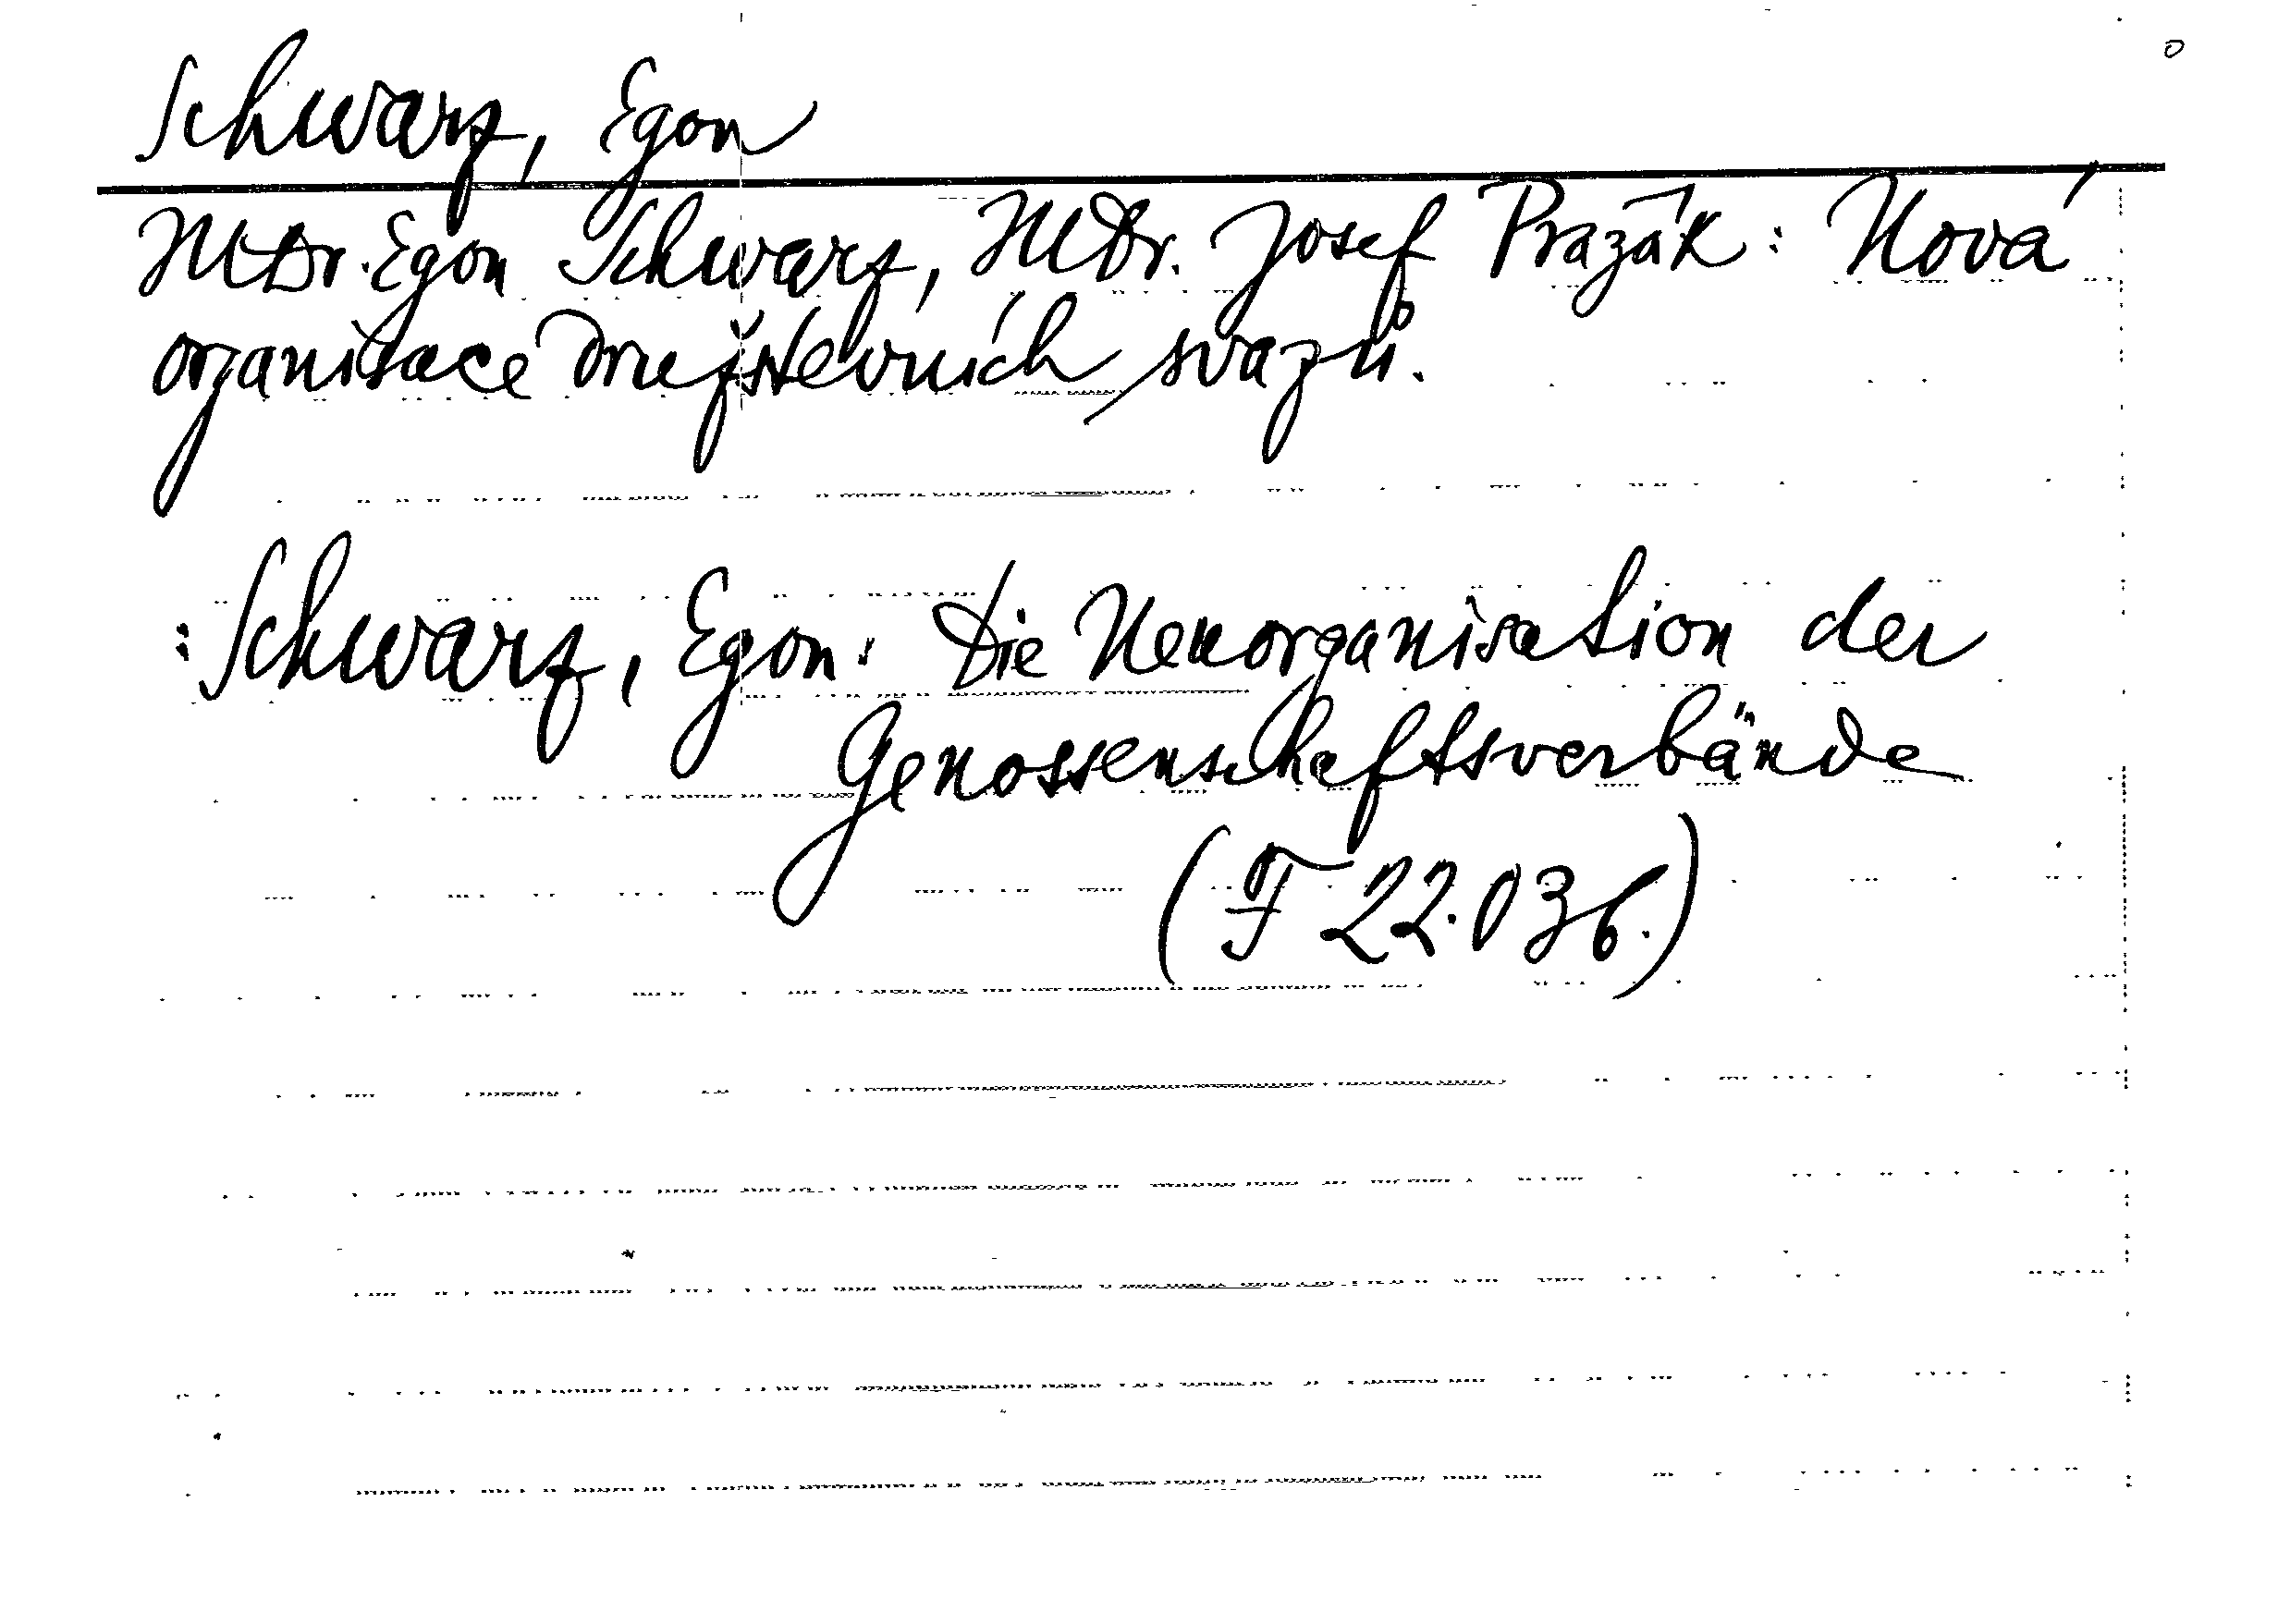 Schwarz, Egon
MDr. Egon Schwarz, MDr. Josef Pražák: Nová
organisace družstevních svazů.
:Schwarz, Egon: Die Neuorganisation der
Genossenschaftsverbände
(F 22.036.)